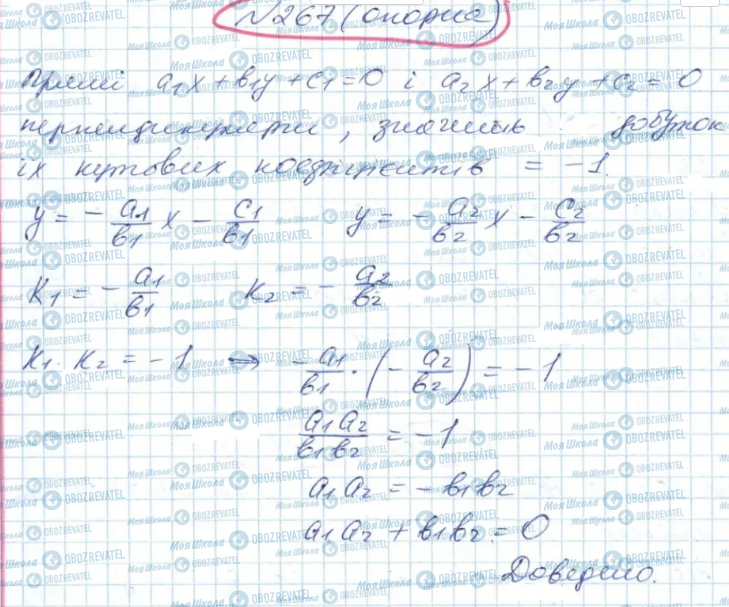 №267 (опорна)
Прямі a₁x + b₁y + c₁ = 0 і a₂x + b₂y + c₂ = 0
перпендикулярні, значить добуток
їх кутових коефіцієнтів = -1.
y = - a₁/b₁ x - c₁/b₁ y = - a₂/b₂ x - c₂/b₂
K₁ = - a₁/b₁ K₂ = - a₂/b₂
K₁ · K₂ = -1 ⇒ - a₁/b₁ · (- a₂/b₂) = -1
a₁a₂/b₁b₂ = -1
a₁a₂ = - b₁b₂
a₁a₂ + b₁b₂ = 0
Доведено.